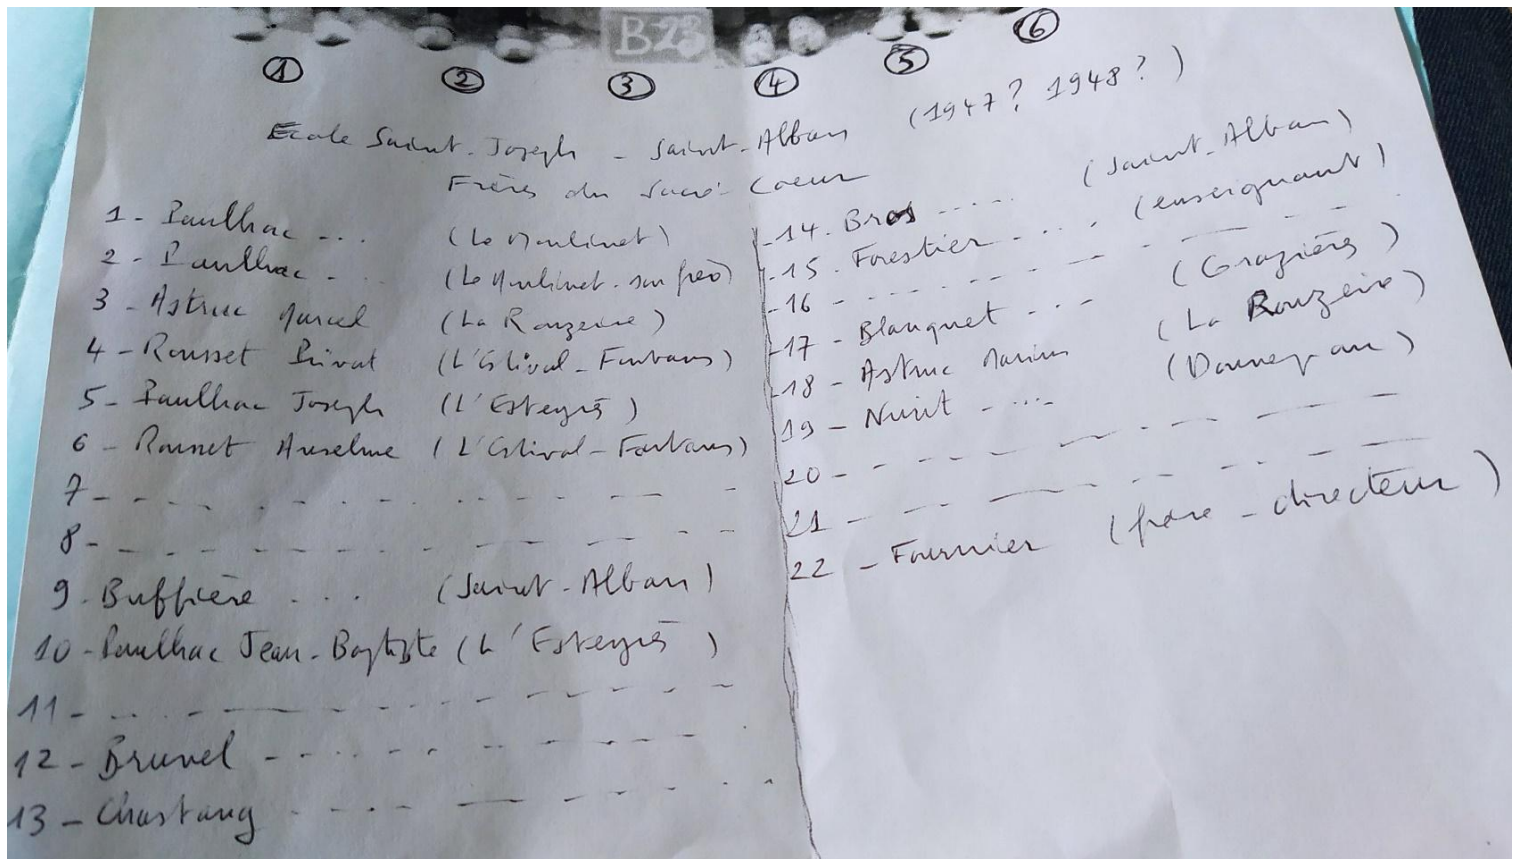 B-23
1 2 3 4 5 6
Ecole Saint-Joseph - Saint-Alban (1947? 1948?)
Frères du Sacré-Coeur
1 - Paulhac ... (Le Moulinet)
2 - Paulhac - .. (Le Moulinet - son frère)
3 - Astruc Marcel (La Rouzeire)
4 - Rousset Privat (L'Estival - Fontans)
5 - Paulhac Joseph (L'Esteyrès)
6 - Rousset Anselme (L'Estival - Fontans)
7 -
8 -
9 - Buffière ... (Saint-Alban)
10 - Paulhac Jean-Baptiste (L'Esteyrès)
11 -
12 - Brunel
13 - Chastang
14 - Bros ..... (Saint-Alban)
15 - Forestier - ... (enseignant)
16 -
17 - Blanquet - .. - (Grazières)
18 - Astruc Marius (La Rouzeire)
19 - Nurit - ... (Donnepau)
20 -
21 -
22 - Fournier (frère - directeur)